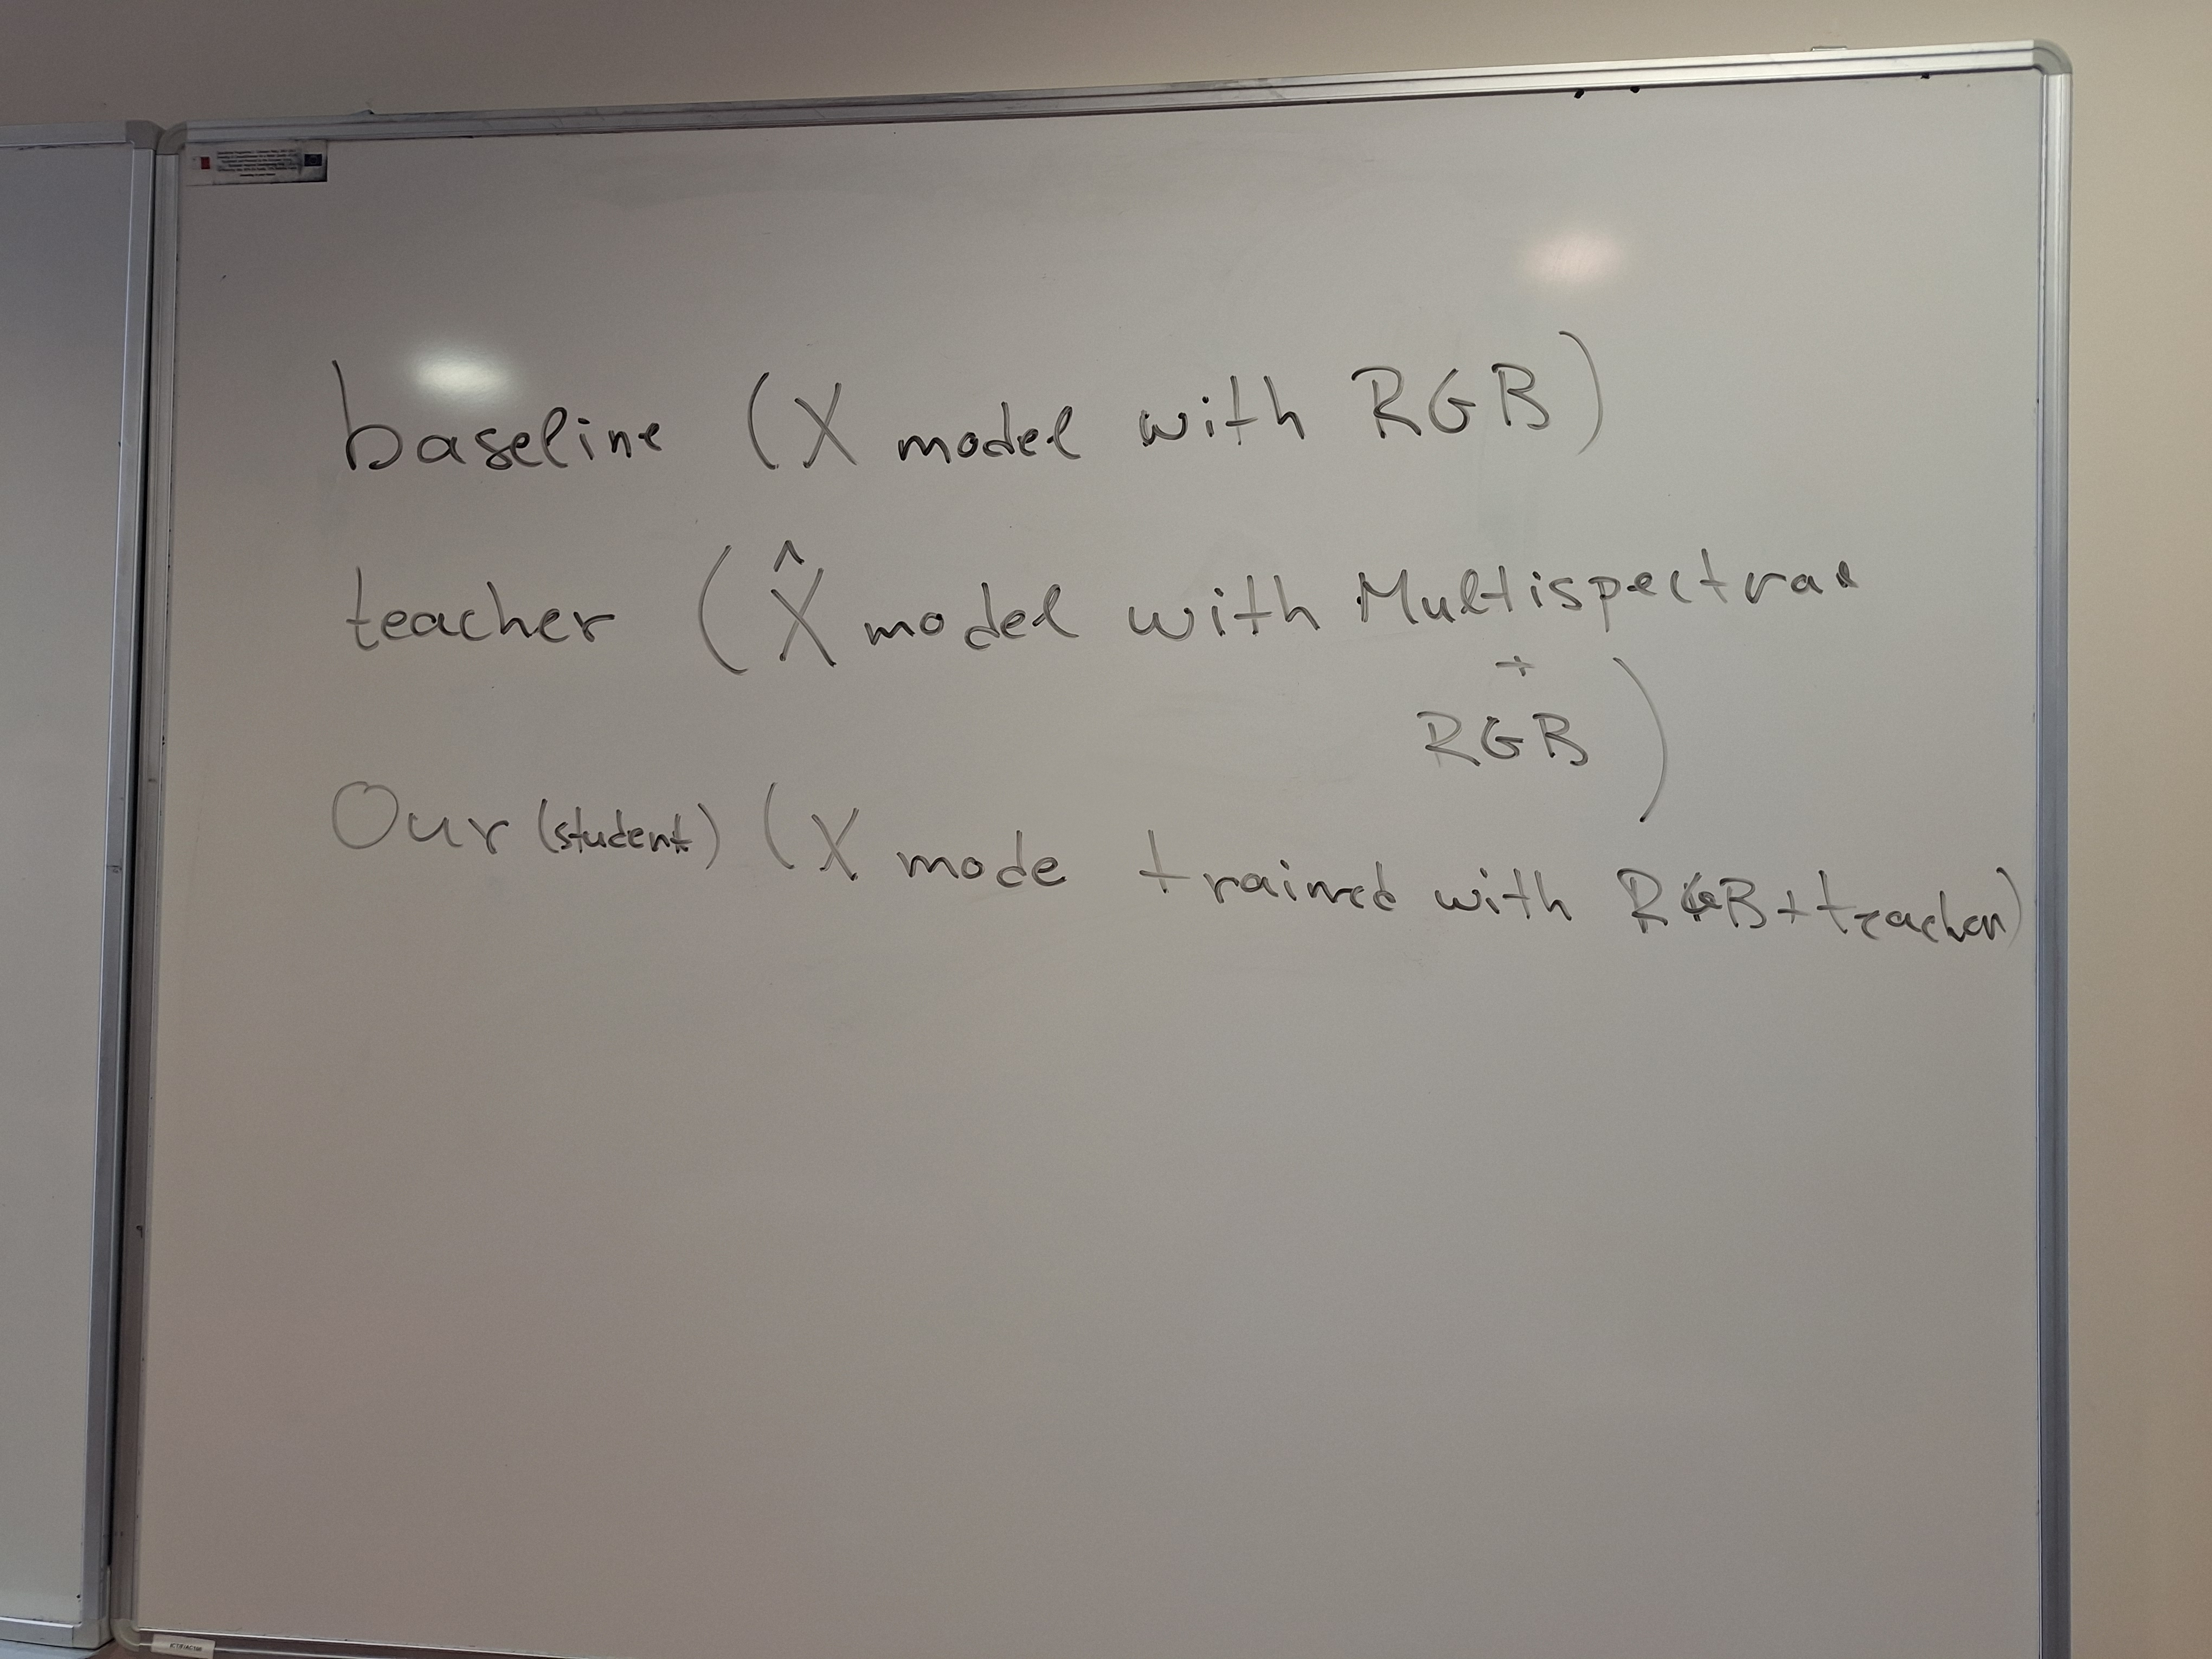 baseline (X model with RGB)
teacher (X̂ model with Multispectral
+
RGB)
Our (student) (X mode trained with RGB + teacher)